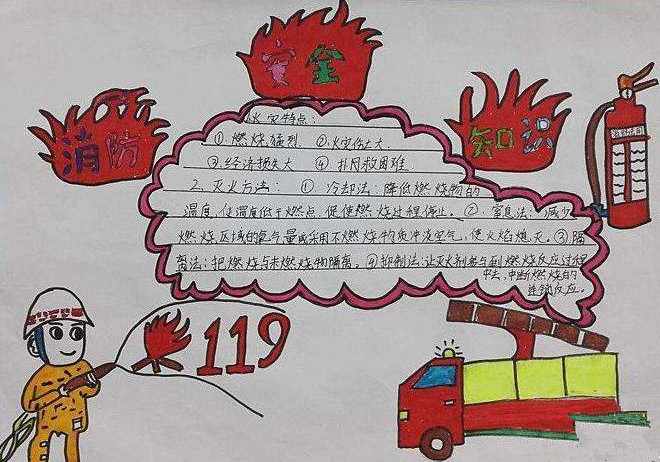 消防
安全
知识
火灾特点:
①燃烧猛烈 ②火灾伤亡大
③经济损失大 ④扑救困难
2、灭火方法: ①冷却法 降低燃烧物的
温度,使温度低于燃点,促使燃烧过程停止。②、窒息法: 减少
燃烧区域的氧气量或采用不燃烧物质冲淡空气,使火焰熄灭。③隔
离法:把燃烧与未燃烧物隔离。④抑制法:让灭火剂参与到燃烧反应过程
中去,中断燃烧的
连锁反应。
119